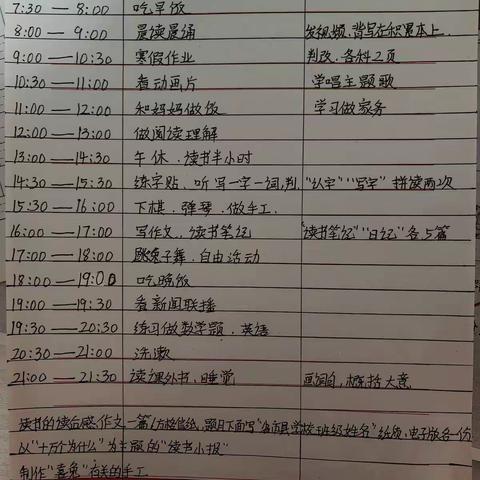 7:30 — 8:00 吃早饭
8:00 — 9:00 晨读晨诵 发视频、背写在积累本上.
9:00 — 10:30 寒假作业 判改、各科2页
10:30 — 11:00 看动画片 学唱主题歌
11:00 — 12:00 和妈妈做饭 学习做家务
12:00 — 13:00 做阅读理解
13:00 — 14:30 午休、读书半小时
14:30 — 15:30 练字贴、听写一字一词,判. "认字""写字"拼读两次
15:30 — 16:00 下棋、弹琴、做手工.
16:00 — 17:00 写作文、读书笔记 "读书笔记""日记"各5篇
17:00 — 18:00 跳兔子舞、自由活动
18:00 — 19:00 吃晚饭
19:00 — 19:30 看新闻联播
19:30 — 20:30 练习做数学题、英语
20:30 — 21:00 洗漱
21:00 — 21:30 读课外书、睡觉 概括大意
读书的读后感作文一篇(方格信纸,题目下面写"县学校班级姓名"纸质、电子版各一份
以"十万个为什么"为主题的"读书小报"
制作"喜兔"有关的手工